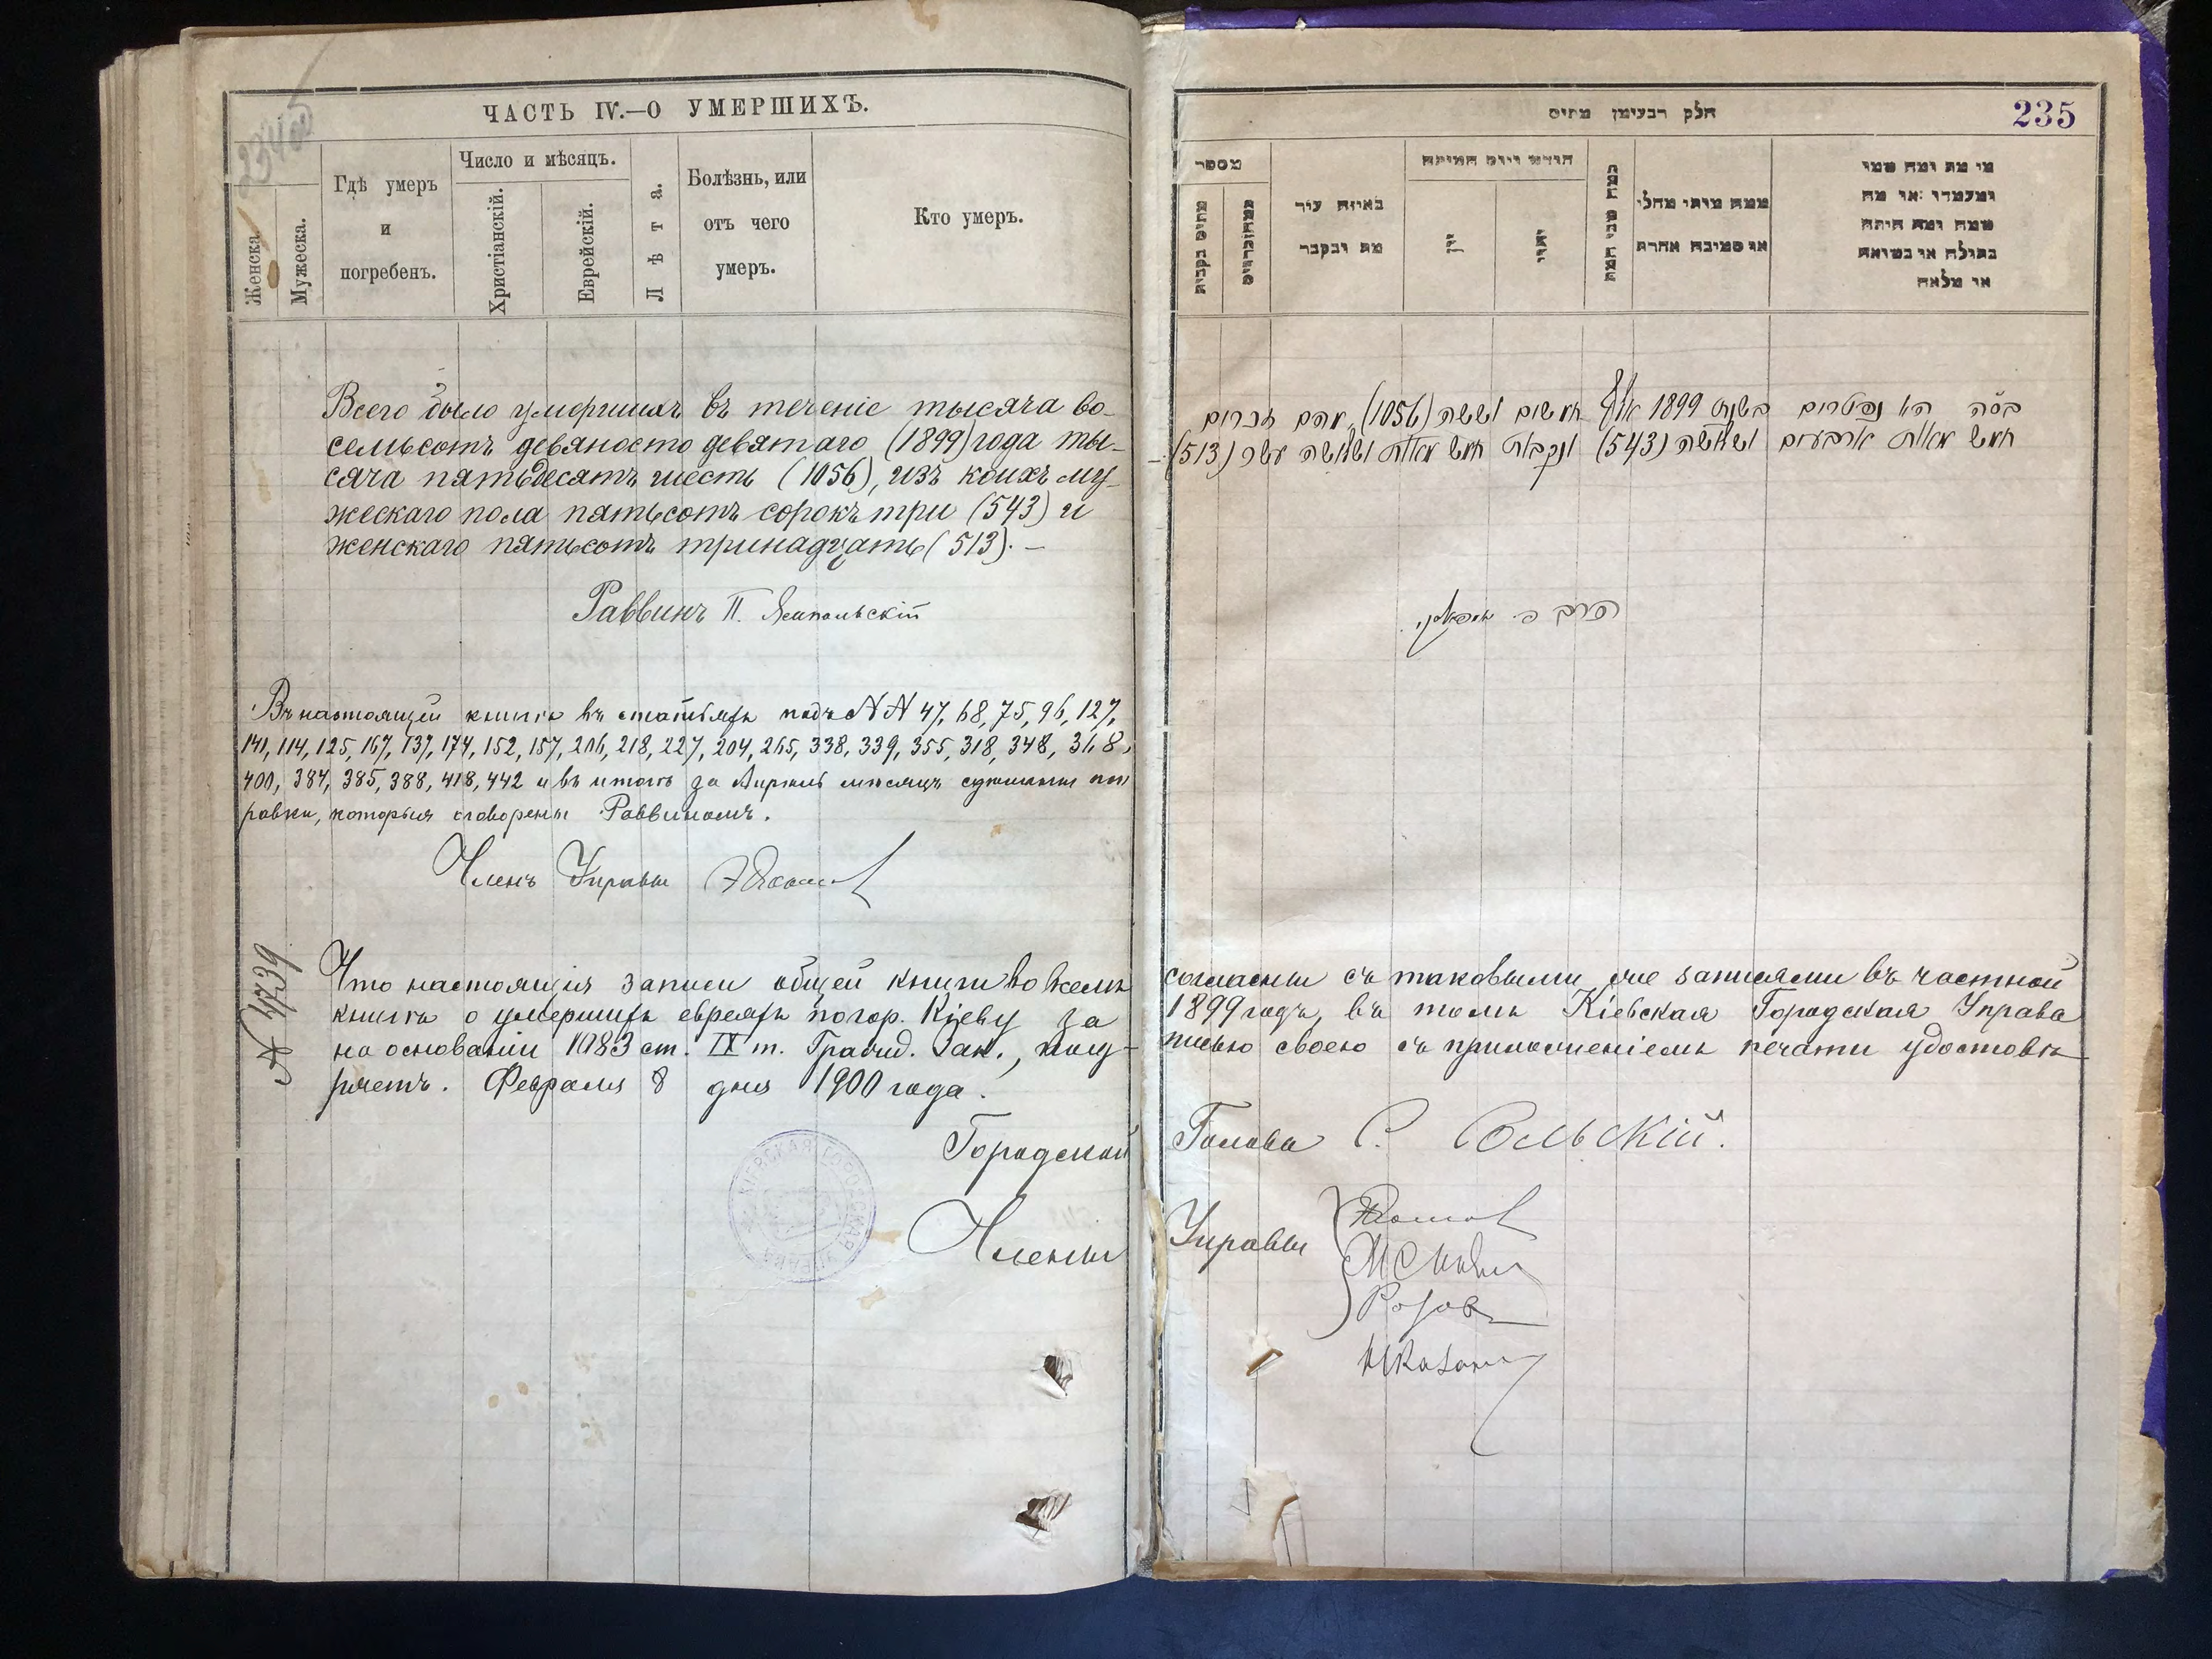 ЧАСТЬ IV.—О УМЕРШИХЪ.
Женска.
Мужеска.
Гдѣ умеръ
и
погребенъ.
Число и мѣсяцъ.
Христіанскій.
Еврейскій.
Лѣта.
Болѣзнь, или
отъ чего
умеръ.
Кто умеръ.
Всего было умершихъ въ теченіе тысяча во-
семьсотъ девяносто девятаго (1899) года ты-
сяча пятьдесятъ шесть (1056), изъ коихъ му-
жескаго пола пятьсотъ сорокъ три (543) и
женскаго пятьсотъ тринадцать (513). —
Раввинъ П. Ямпольскій
Въ настоящей книгѣ въ статьяхъ подъ №№ 47, 68, 75, 96, 127,
141, 114, 125, 167, 137, 174, 152, 157, 206, 218, 227, 204, 265, 338, 339, 355, 318, 348, 368,
400, 384, 385, 388, 418, 442 и въ итогѣ за Апрѣль мѣсяцъ сдѣланы поп
равки, которыя оговорены Раввиномъ.
Членъ Управы
№ 4739
Что настоящія записи общей книги во всемъ
книгѣ о умершихъ евреяхъ по гор. Кіеву за
на основаніи 1083 ст. IX т. Гражд. Зак., подп-
ряетъ. Февраля 8 дня 1900 года.
Городской
Члены
КІЕВСКАЯ ГОРОДСКАЯ УПРАВА
235
חלק רבעימן מתים
מספר
באיזה עיר
מת ונקבר
חודש ויום המיתה
ממה מותו מחלי
או מסיבה אחרת
מי מת ומה שמו
ומעמדו או מה
שמה ומה היתה
בתולה או נשואה
או אלמנה
בס״ה היו נפטרים בשנת 1899 אלף חמשים וששה (1056), מהם זכרים
חמש מאות ארבעים ושלושה (543) ונקבות חמש מאות ושלושה עשר (513)
הרב פ. יאמפאלסקי.
согласны съ таковыми же записями въ частной
1899 годъ, въ томъ Кіевская Городская Управа
писью своею съ приложеніемъ печати удостовѣ
Голова С. Сольскій.
Управы
Розовъ